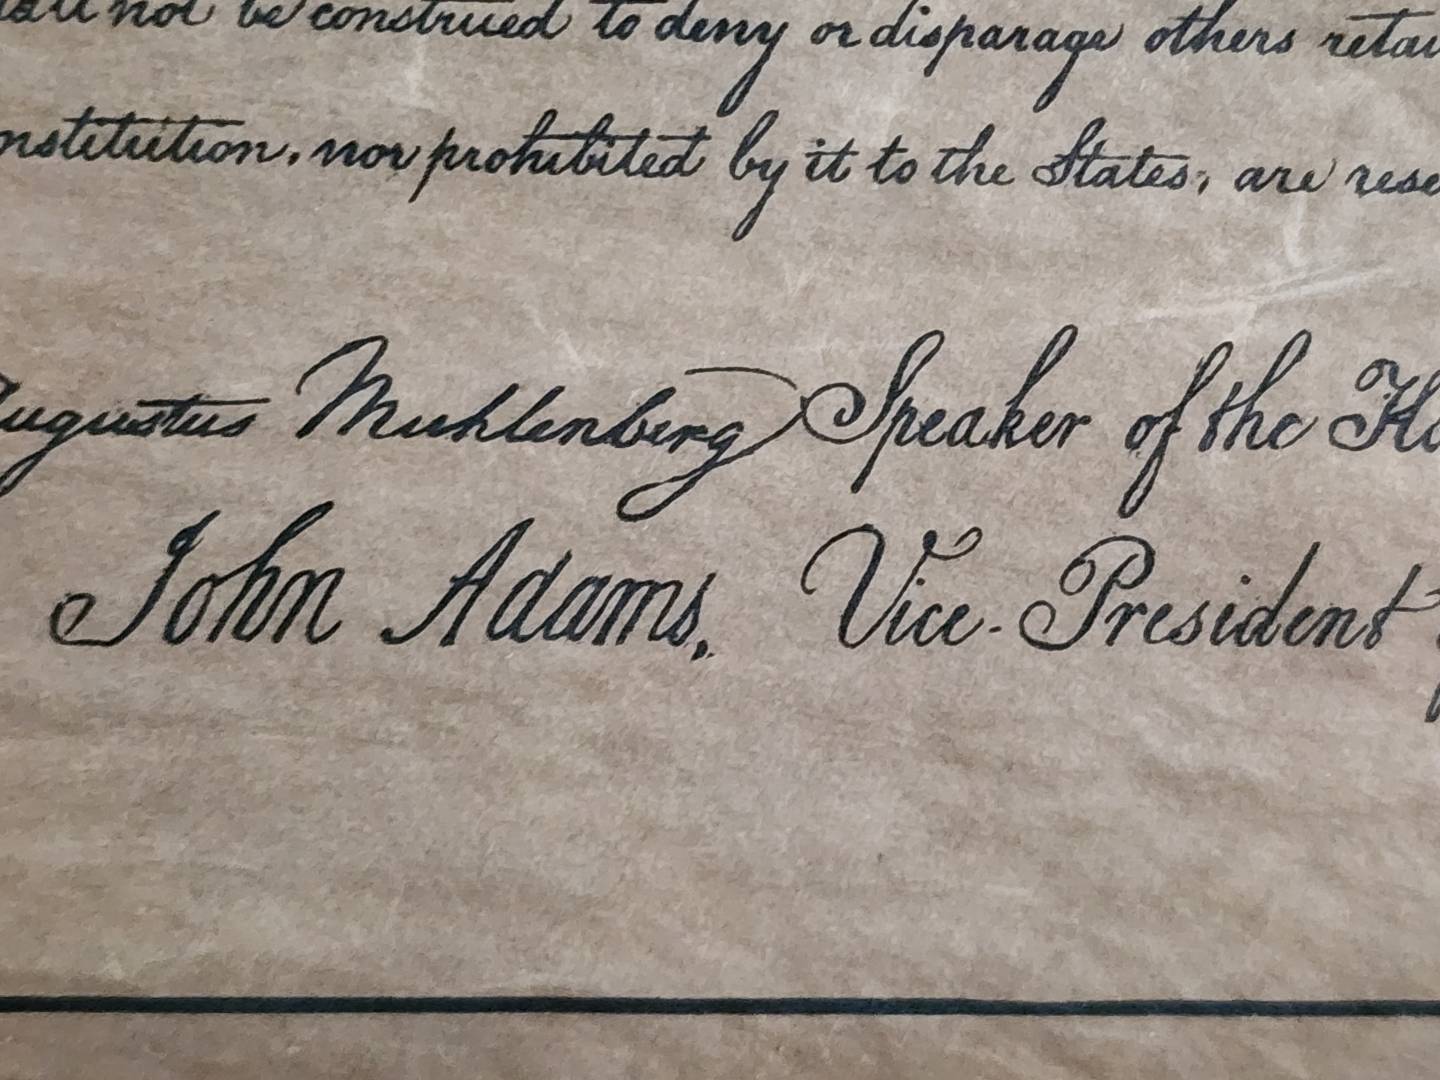 shall not be construed to deny or disparage others retai
nstitution, nor prohibited by it to the States, are rese
Augustus Muhlenberg Speaker of the Ho
John Adams, Vice-President